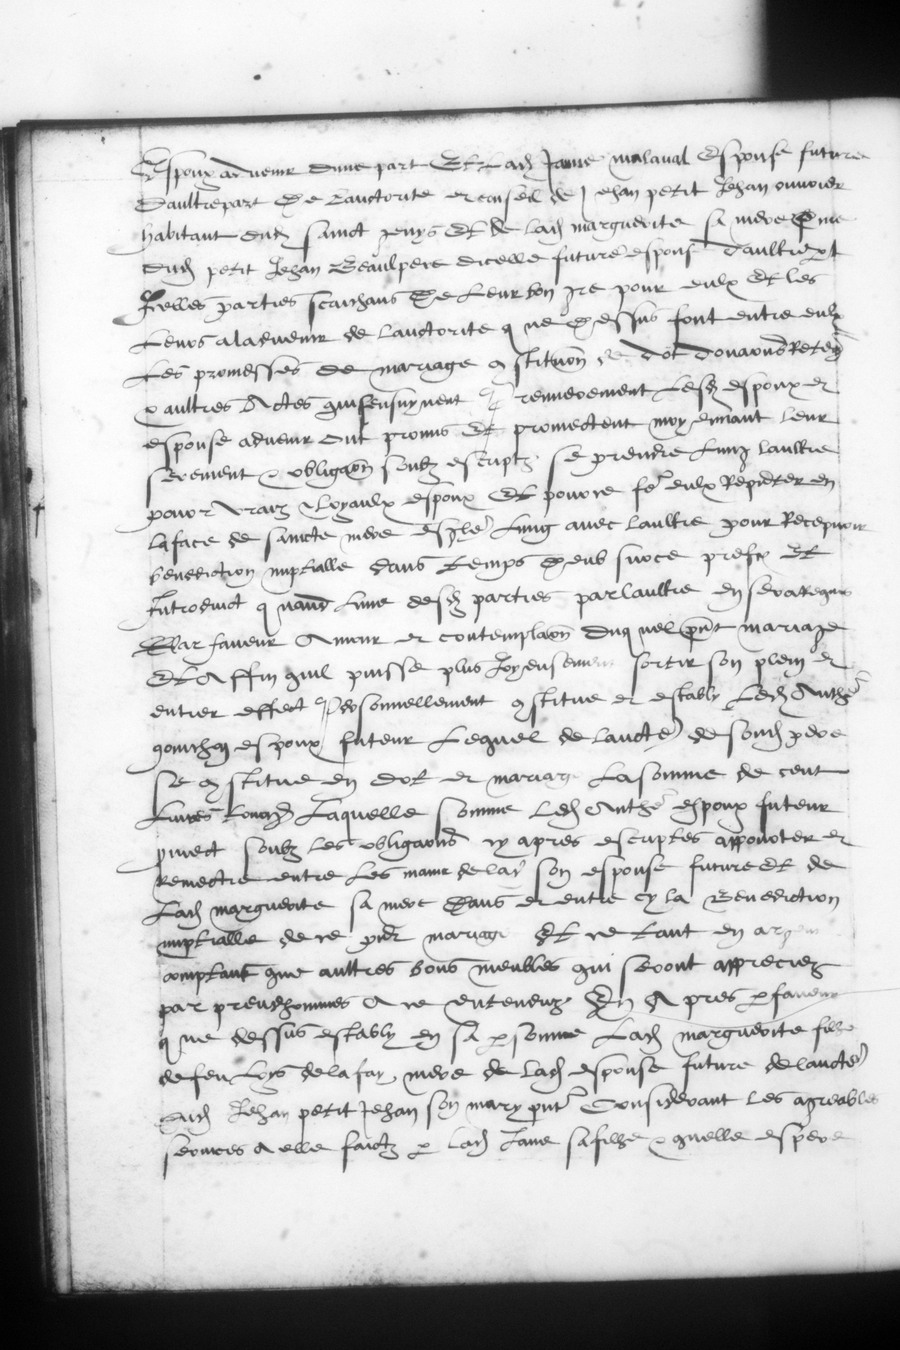 Espoux advenir dune part Et Lad Jame malaval Espouse future
Daultrepart De Lauctorite et conseil de Jehan petit Jehan
habitant dud sainct Et de lad marguerite sa mere
dud petit Jehan Beaulpere dicelle future espouse Daultrept
Jcelles parties scaichans De Leur bon gre pour eulx Et les
Leurs aladvenir de Lauctorite que Dessus font entre eulx
Les promesses de mariage constituon de dot
& aultres Actes quisensuyvent Et Lesd espoux et
espouse advenir ont promis Et promectent moyennant leur
serement & obligaon soubz escriptz se prendre Lung laultre
pour vraiz & Loyaulx espoux Et pouvre fe eulx Repnter en
laface de saincte mere esgle Lung avec laultre pour Recepvoir
benediction nuptialle dans temps deub prefix Et
Introduict quand Lune desd parties parlaultre en sera Requis
Par faveur Amour et contemplaon duquel pnt mariage
Et Affin quil puisse plus Joyeusement sortir son plein et
entier effect Personnellement constitue et estably Led Anthe
espoux futeur Lequel de laucte de sond pere
se constitue en dot et mariage Lasomme de cent
Livres Laquelle somme Led Anthe espoux futeur
pmect soubz les obligaons cy apres escriptes appourter et
Remectre entre Les mains de lad son espouse future Et de
Lad marguerite sa mere Dans et entre cy la Benediction
nuptialle de ce pnt mariage Et ce tant en argent
comptant que aultres bons meubles qui seront appreciez
par preudhommes A ce entenduz Et Apres pfaveur
que dessus estably en sa psonne Lad marguerite fille
defeu Loys delafay mere de lad espouse future delaucte
dud Jehan petit Jehan son mary pnt Considerant les agreables
services A elle faictz p lad Jame safille & quelle espere